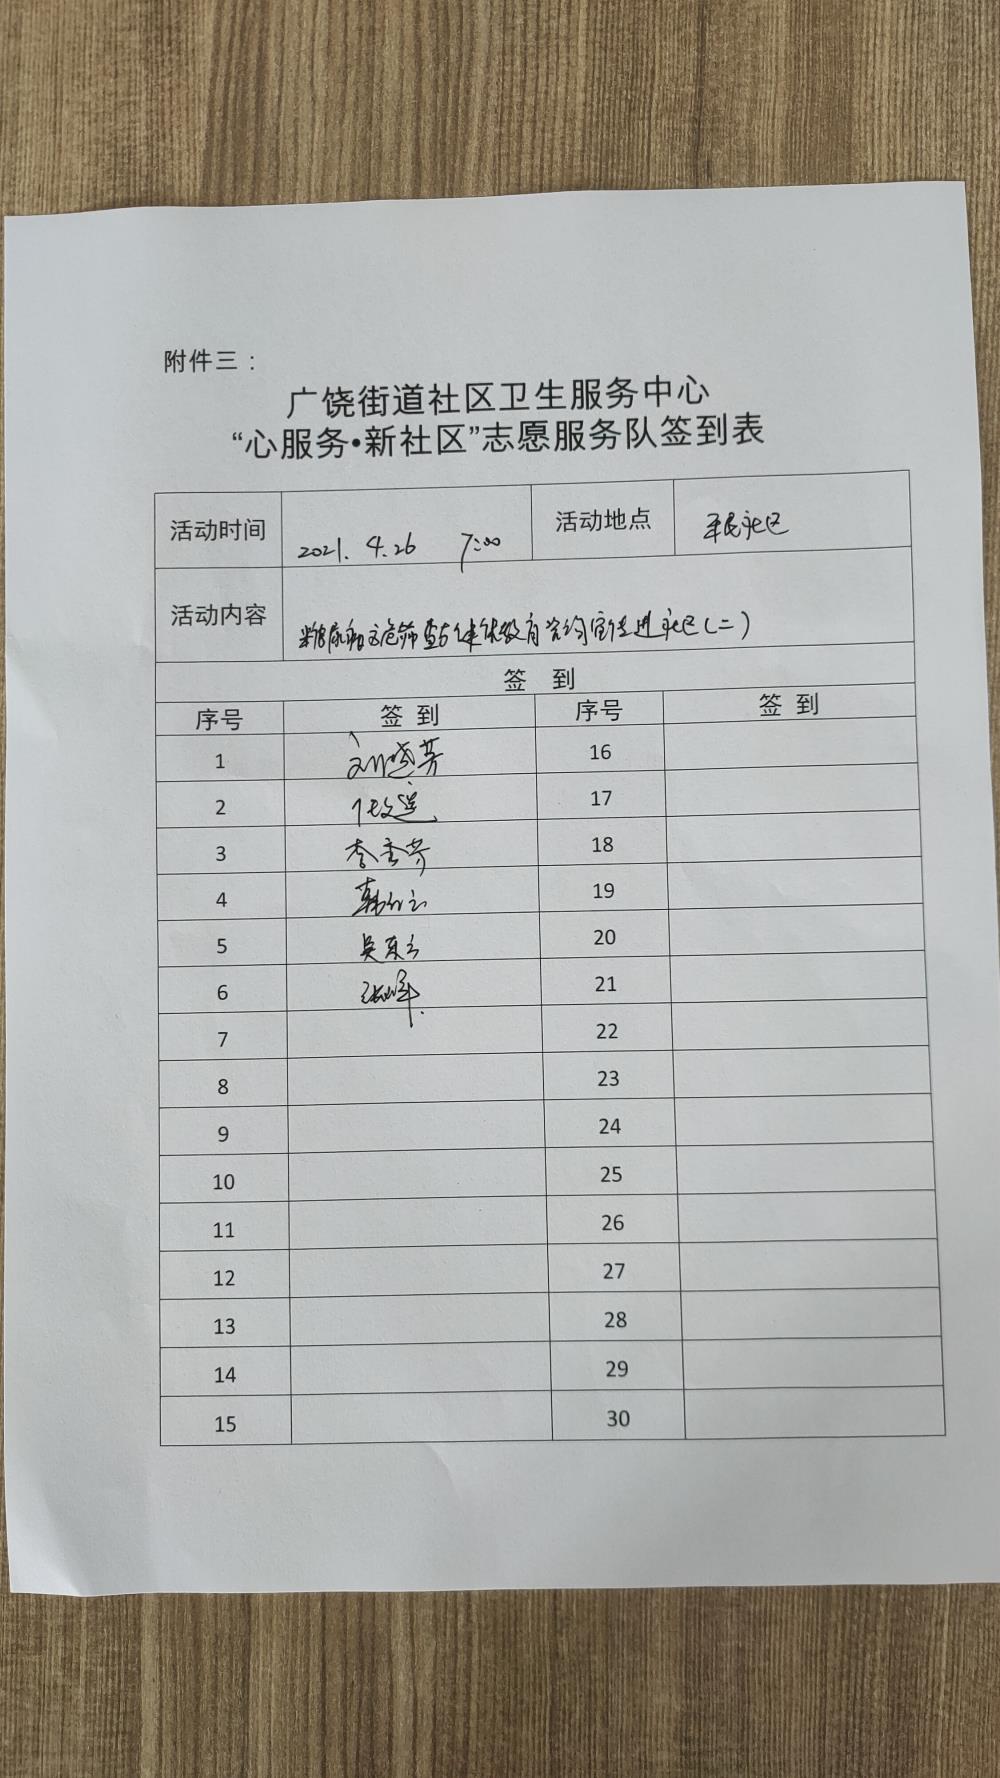 附件三：
广饶街道社区卫生服务中心
“心服务•新社区”志愿服务队签到表
活动时间 2021. 4. 26 7:00 活动地点 社区
活动内容 糖尿病 筛查与健康教育咨询宣传进社区(二)
签 到
序号 签 到 序号 签 到
1 刘盛芳 16
2 17
3 李秀芳 18
4 韩红云 19
5 吴东云 20
6 张峰 21
7 22
8 23
9 24
10 25
11 26
12 27
13 28
14 29
15 30